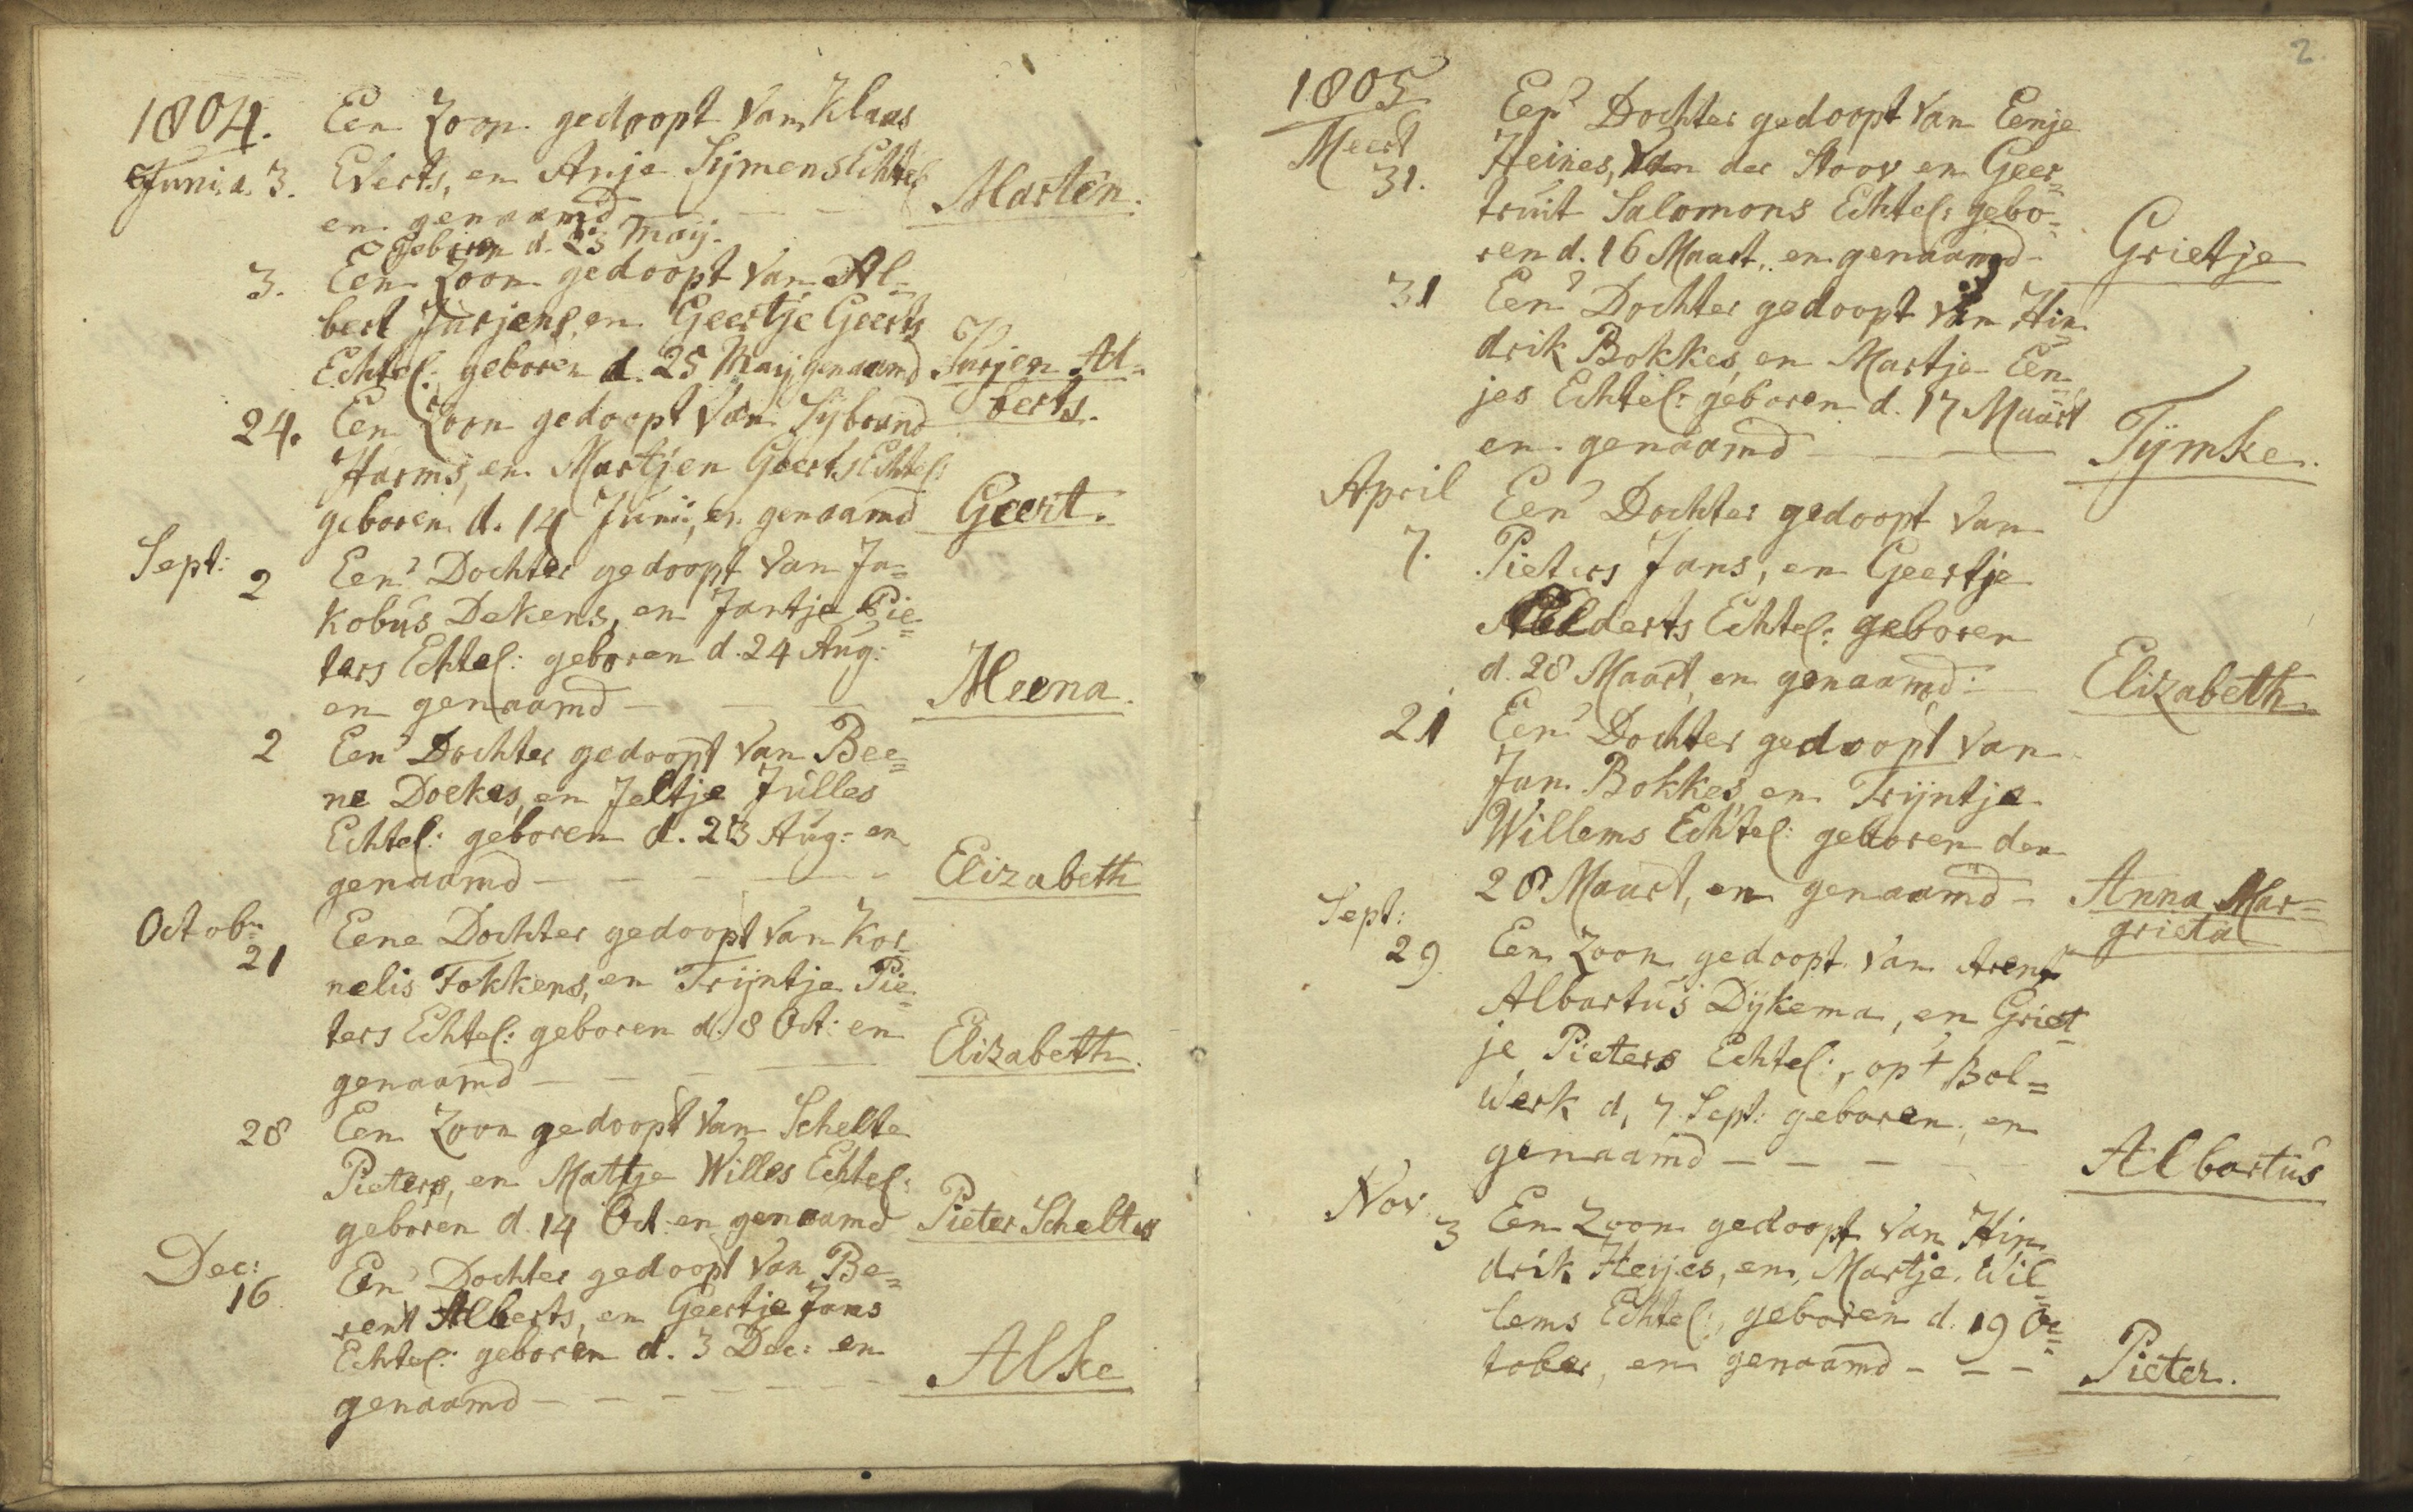 1804. Een Zoon gedoopt Van Klaas
Junij d. 3. Everts, en Anje Sijmens Echtel:
en genaamd - - Marten.
Geboren d. 23 Maij.
3. Een Zoon gedoopt Van Al=
bert Jurjens, en Geertje Geerts
Echtel: geboren d. 25 Maij genaamd Jurjen Al=
berts.
24. Een Zoon gedoopt Van Sijbrand
Harms, en Martjen Geerts Echtel:
geboren d. 14 Junii, en genaamd Geert.
Sept: 2 Een Dochter gedoopt Van Ja=
kobus Dekens, en Jantje Pie=
ters Echtel: geboren d. 24 Aug:
en genaamd - - - Meena.
2 Een Dochter gedoopt Van Bee=
ne Doekes, en Jeltje Julles
Echtel: geboren d. 23 Aug: en
genaamd - - - - - Elizabeth
Octobr: 21 Eene Dochter gedoopt Van Kor=
nelis Fokkens, en Trijntje Pie=
ters Echtel: geboren d. 8 Oct: en
genaamd - - - - Elizabeth.
28 Een Zoon gedoopt Van Schelte
Pieters, en Mattje Willes Echtel:
geboren d. 14 Oct. en genaamd Pieter Scheltes
Dec: 16. Een Dochter gedoopt Van Be=
rent Alberts, en Geertje Jans
Echtel: geboren d. 3 Dec: en
genaamd - - - - - Alke
2
1805
Meert 31. Een Dochter gedoopt Van Eenje
Heines, Van der Stoov en Geer=
truit Salomons Echtel: gebo=
ren d. 16 Maart, en genaamd - Grietje
31 Een Dochter gedoopt Van Hin=
drik Bokkes, en Martje Een=
jes Echtel: geboren d. 17 Maart
en genaamd - - - Tijmke.
April 7. Een Dochter gedoopt Van
Pieters Jans, en Geertje
derts Echtel: geboren
d. 28 Maart, en genaamd: - Elizabeth.
21 Een Dochter gedoopt Van
Jan Bokkes, en Trijntje
Willems Echtel: geboren den
28 Maart, en genaamd - Anna Mar=
grieta
Sept: 29. Een Zoon gedoopt Van Arent
Albartus Dijkema, en Griet=
je Pieters Echtel:, op 't Bol=
werk d. 7 Sept: geboren, en
genaamd - - - Albartus
Nov. 3 Een Zoon gedoopt Van Hin=
drik Heijes, en, Martje Wil=
lems Echtel:, geboren d. 19 Oc=
tober, en genaamd - - - Pieter.